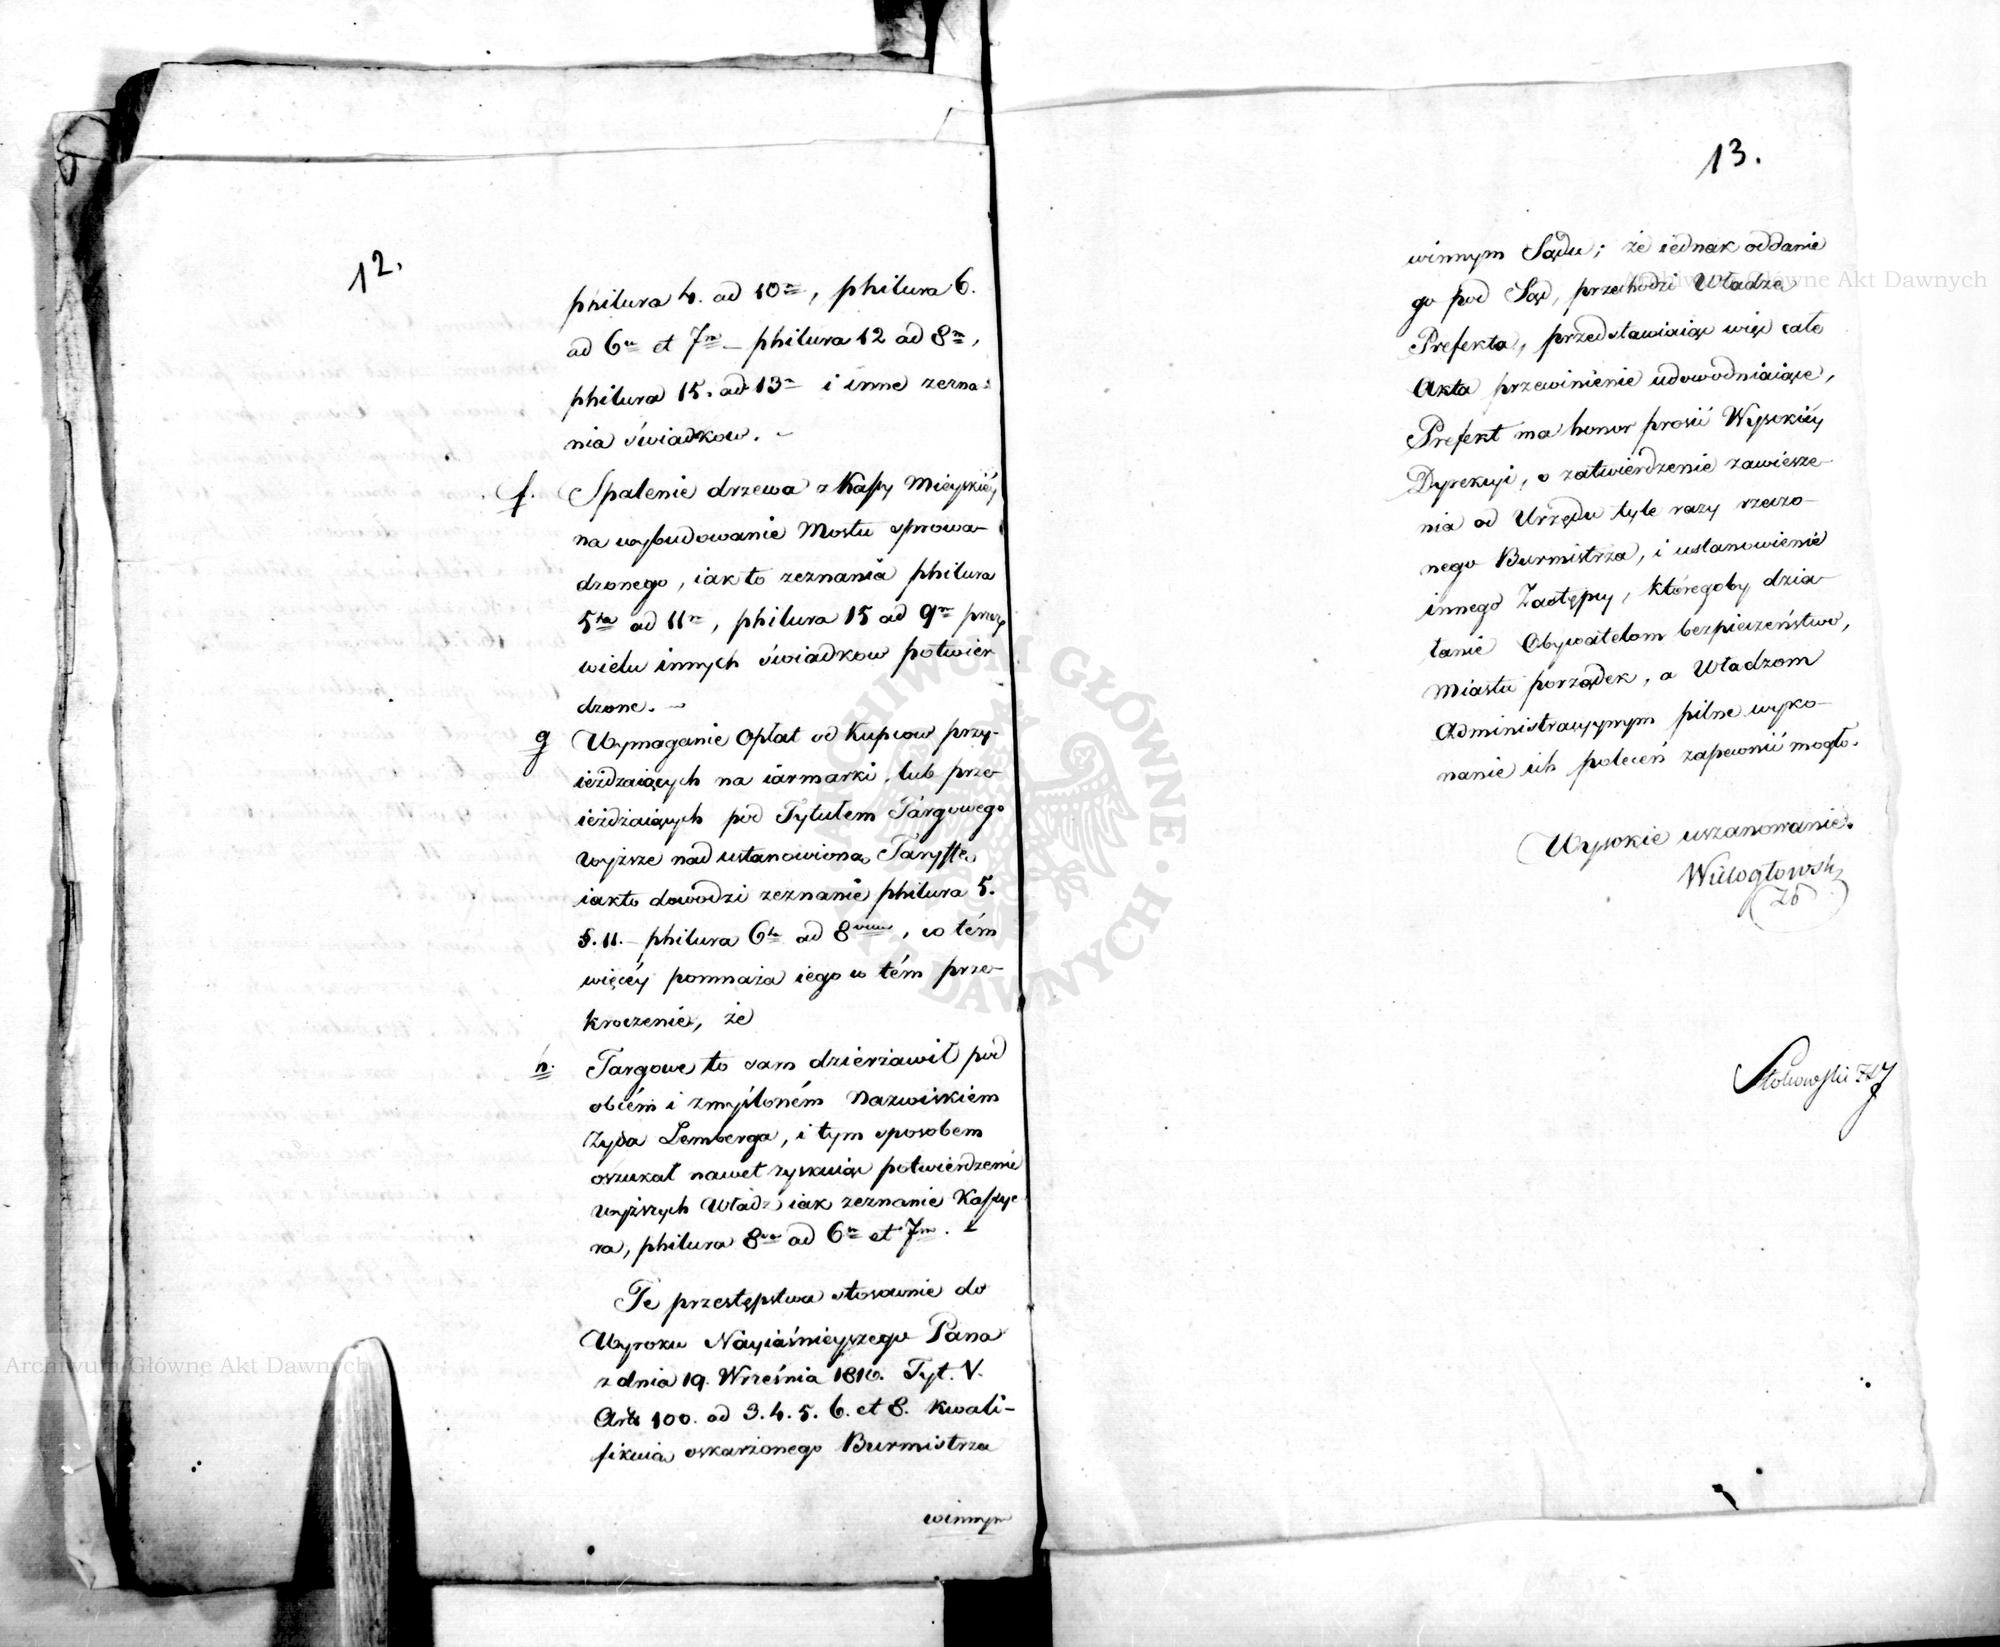 12.
philura 4. ad 10m, philura 6.
ad 6m et 7m – philura 12 ad 8m,
philura 15. ad 13m i inne zezna-
nia świadkow. –
f. Spalenie drzewa z Kassy Mieyskiéy
na wybudowanie Mostu sprowa-
dzonego, iak to zeznania philura
5ta ad 11m, philura 15 ad 9m przez
wielu innych świadkow potwier
dzone. –
g Wymaganie Opłat od Kupcow przy-
ieżdzaiących na iarmarki, lub prze-
ieżdżaiących pod Tytułem Targowego
wyższe nad ustanowioną Taryffę
iakto dowodzi zeznanie philura 5.
§. 11. – philura 6ta ad 8vum, co tém
więcéy pomnaża iego w tém prze-
kroczenie, że
h. Targowe to sam dzierżawił pod
obcém i zmyśloném Nazwiskiem
Żyda Lemberga, i tym sposobem
oszukał nawet zyskuiąc potwierdzenie
wyższych Władz iak zeznanie Kassye-
ra, philura 8va ad 6m et 7m. –
Te przestępstwa stosownie do
Wyroku Nayiaśnieyszego Pana
z dnia 19. Września 1810. Tyt. V.
Art. 100. ad 3. 4. 5. 6. et 8. kwali-
fikuią oskarżonego Burmistrza
winnym
13.
winnym Sądu; że iednak oddanie
go pod Sąd, przechodzi Władzę
Prefekta, przedstawiaiąc więc całe
Akta przewinienie udowodniaiące,
Prefekt ma honor prosić Wysokiéy
Dyrekcyi, o zatwierdzenie zawiesze-
nia od Urzędu tyle razy rzeczo-
nego Burmistrza, i ustanowienie
innego Zastępcy, któregoby dzia-
łanie Obywatelom bezpieczeństwo,
Miastu porządek, a Władzom
Administracyynym pilne wyko-
nanie ich poleceń zapewnić mogło.
Wysokie uszanowanie.
Wielogłowski
Archiwum Główne Akt Dawnych
ARCHIWUM GŁÓWNE AKT DAWNYCH
Archiwum Główne Akt Dawnych